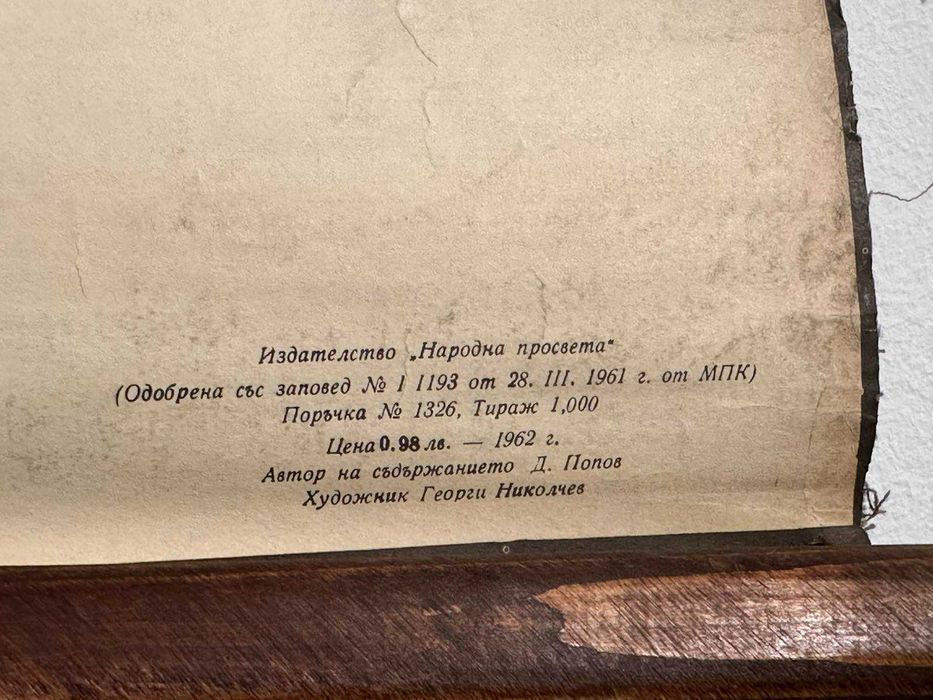 Издателство „Народна просвета“
(Одобрена със заповед № I 1193 от 28. III. 1961 г. от МПК)
Поръчка № 1326, Тираж 1,000
Цена 0.98 лв. — 1962 г.
Автор на съдържанието Д. Попов
Художник Георги Николчев